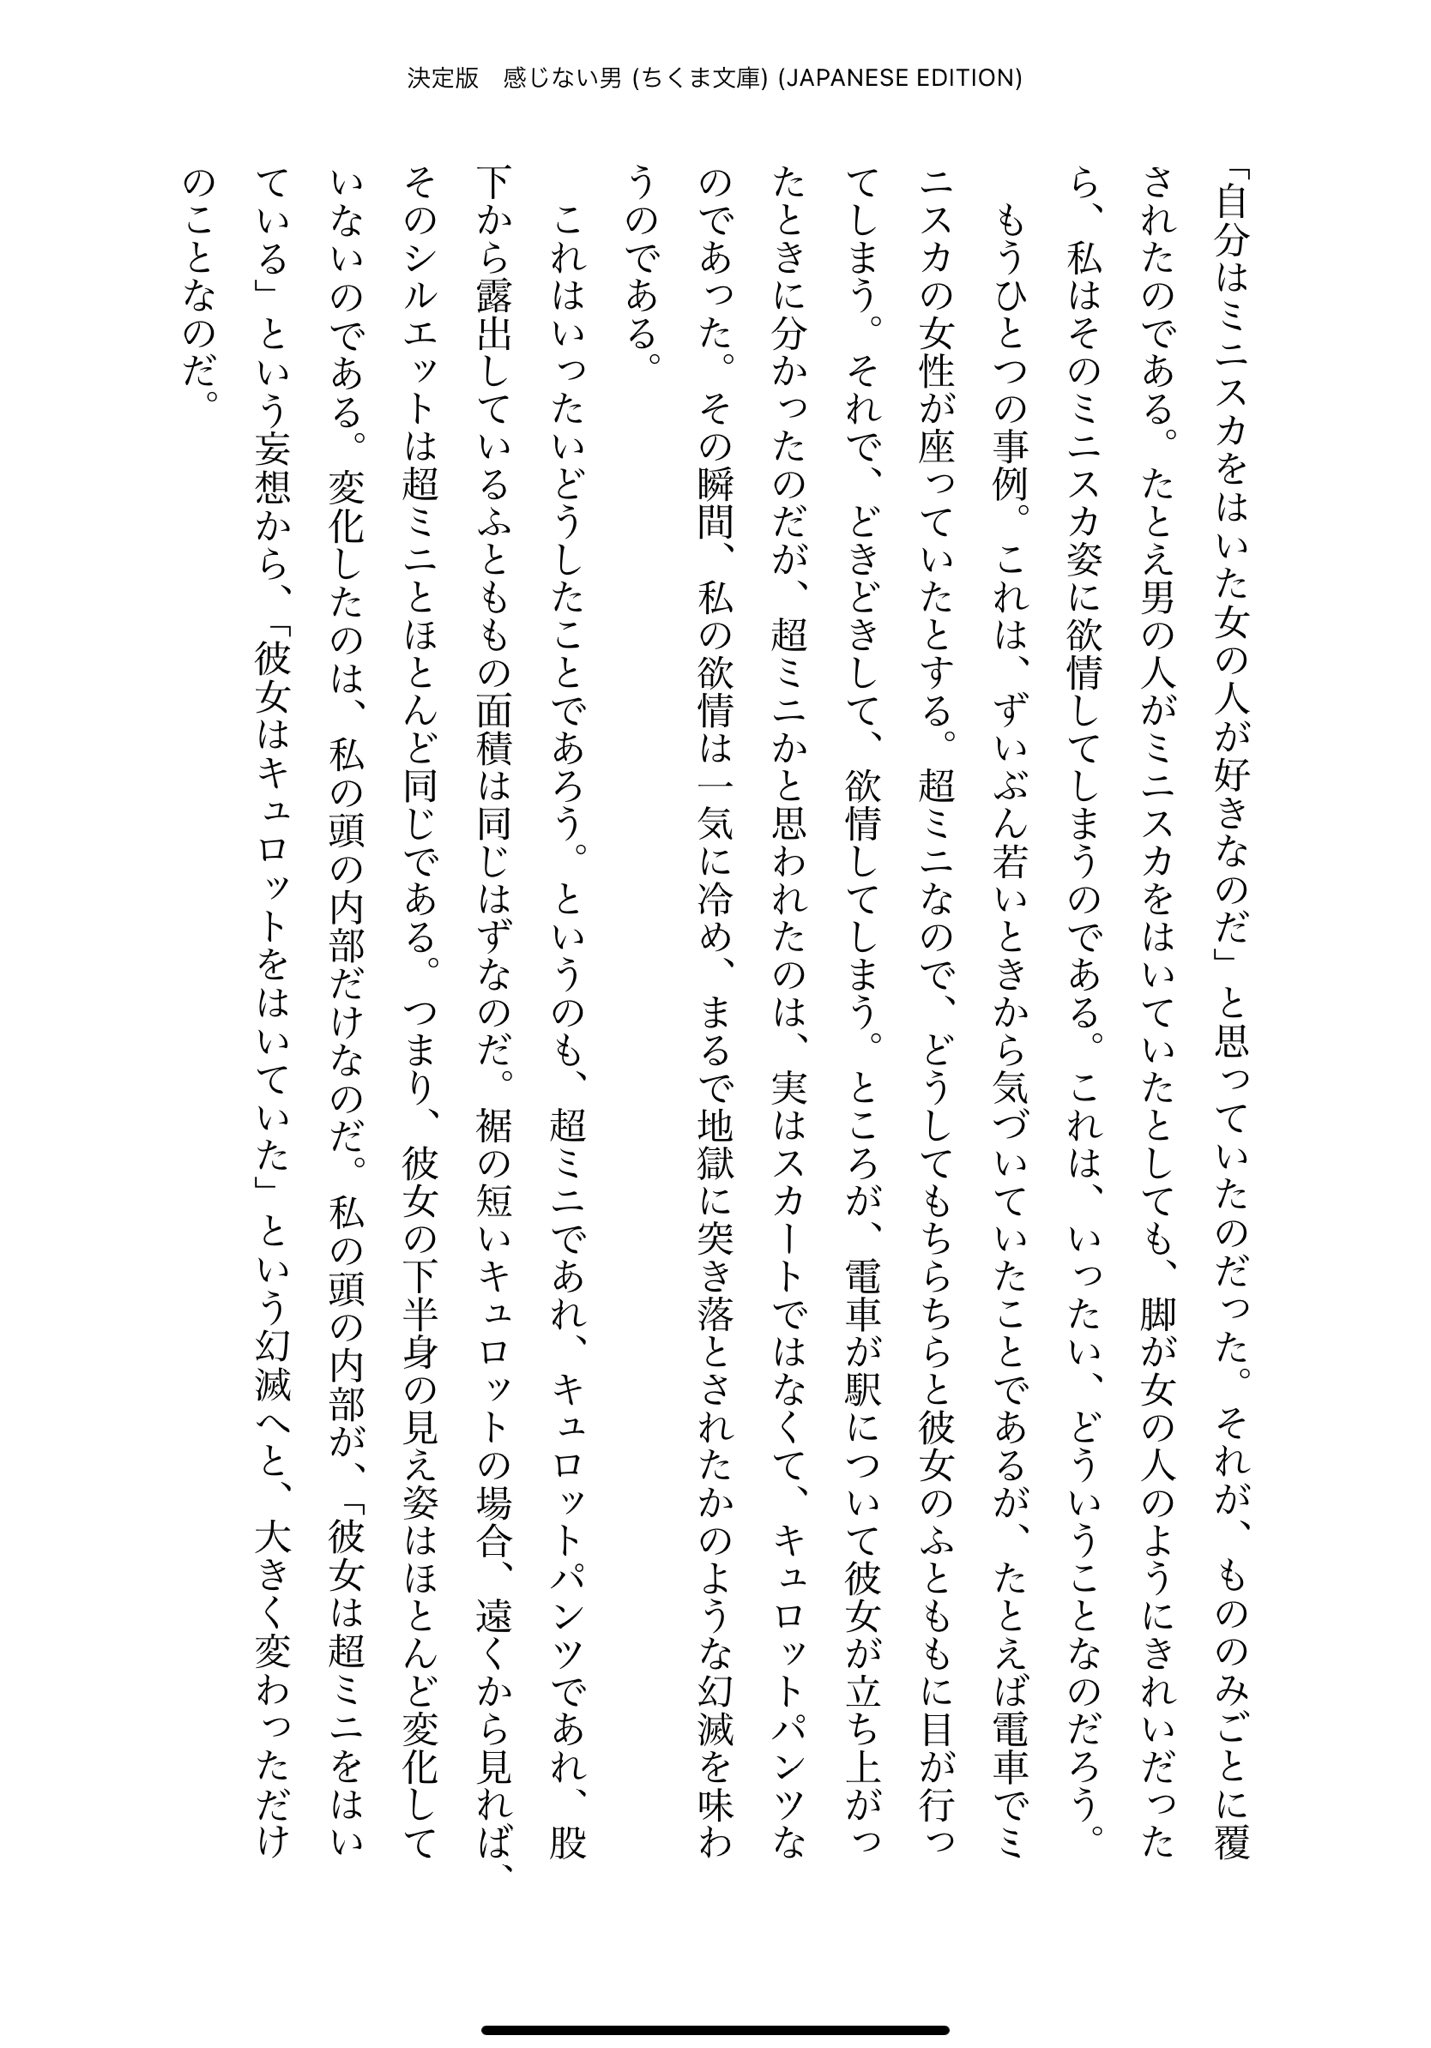 決定版　感じない男 (ちくま文庫) (JAPANESE EDITION)
「自分はミニスカをはいた女の人が好きなのだ」と思っていたのだった。それが、もののみごとに覆
されたのである。たとえ男の人がミニスカをはいていたとしても、脚が女の人のようにきれいだった
ら、私はそのミニスカ姿に欲情してしまうのである。これは、いったい、どういうことなのだろう。
　もうひとつの事例。これは、ずいぶん若いときから気づいていたことであるが、たとえば電車でミ
ニスカの女性が座っていたとする。超ミニなので、どうしてもちらちらと彼女のふとももに目が行っ
てしまう。それで、どきどきして、欲情してしまう。ところが、電車が駅について彼女が立ち上がっ
たときに分かったのだが、超ミニかと思われたのは、実はスカートではなくて、キュロットパンツな
のであった。その瞬間、私の欲情は一気に冷め、まるで地獄に突き落とされたかのような幻滅を味わ
うのである。
　これはいったいどうしたことであろう。というのも、超ミニであれ、キュロットパンツであれ、股
下から露出しているふとももの面積は同じはずなのだ。裾の短いキュロットの場合、遠くから見れば、
そのシルエットは超ミニとほとんど同じである。つまり、彼女の下半身の見え姿はほとんど変化して
いないのである。変化したのは、私の頭の内部だけなのだ。私の頭の内部が、「彼女は超ミニをはい
ている」という妄想から、「彼女はキュロットをはいていた」という幻滅へと、大きく変わっただけ
のことなのだ。